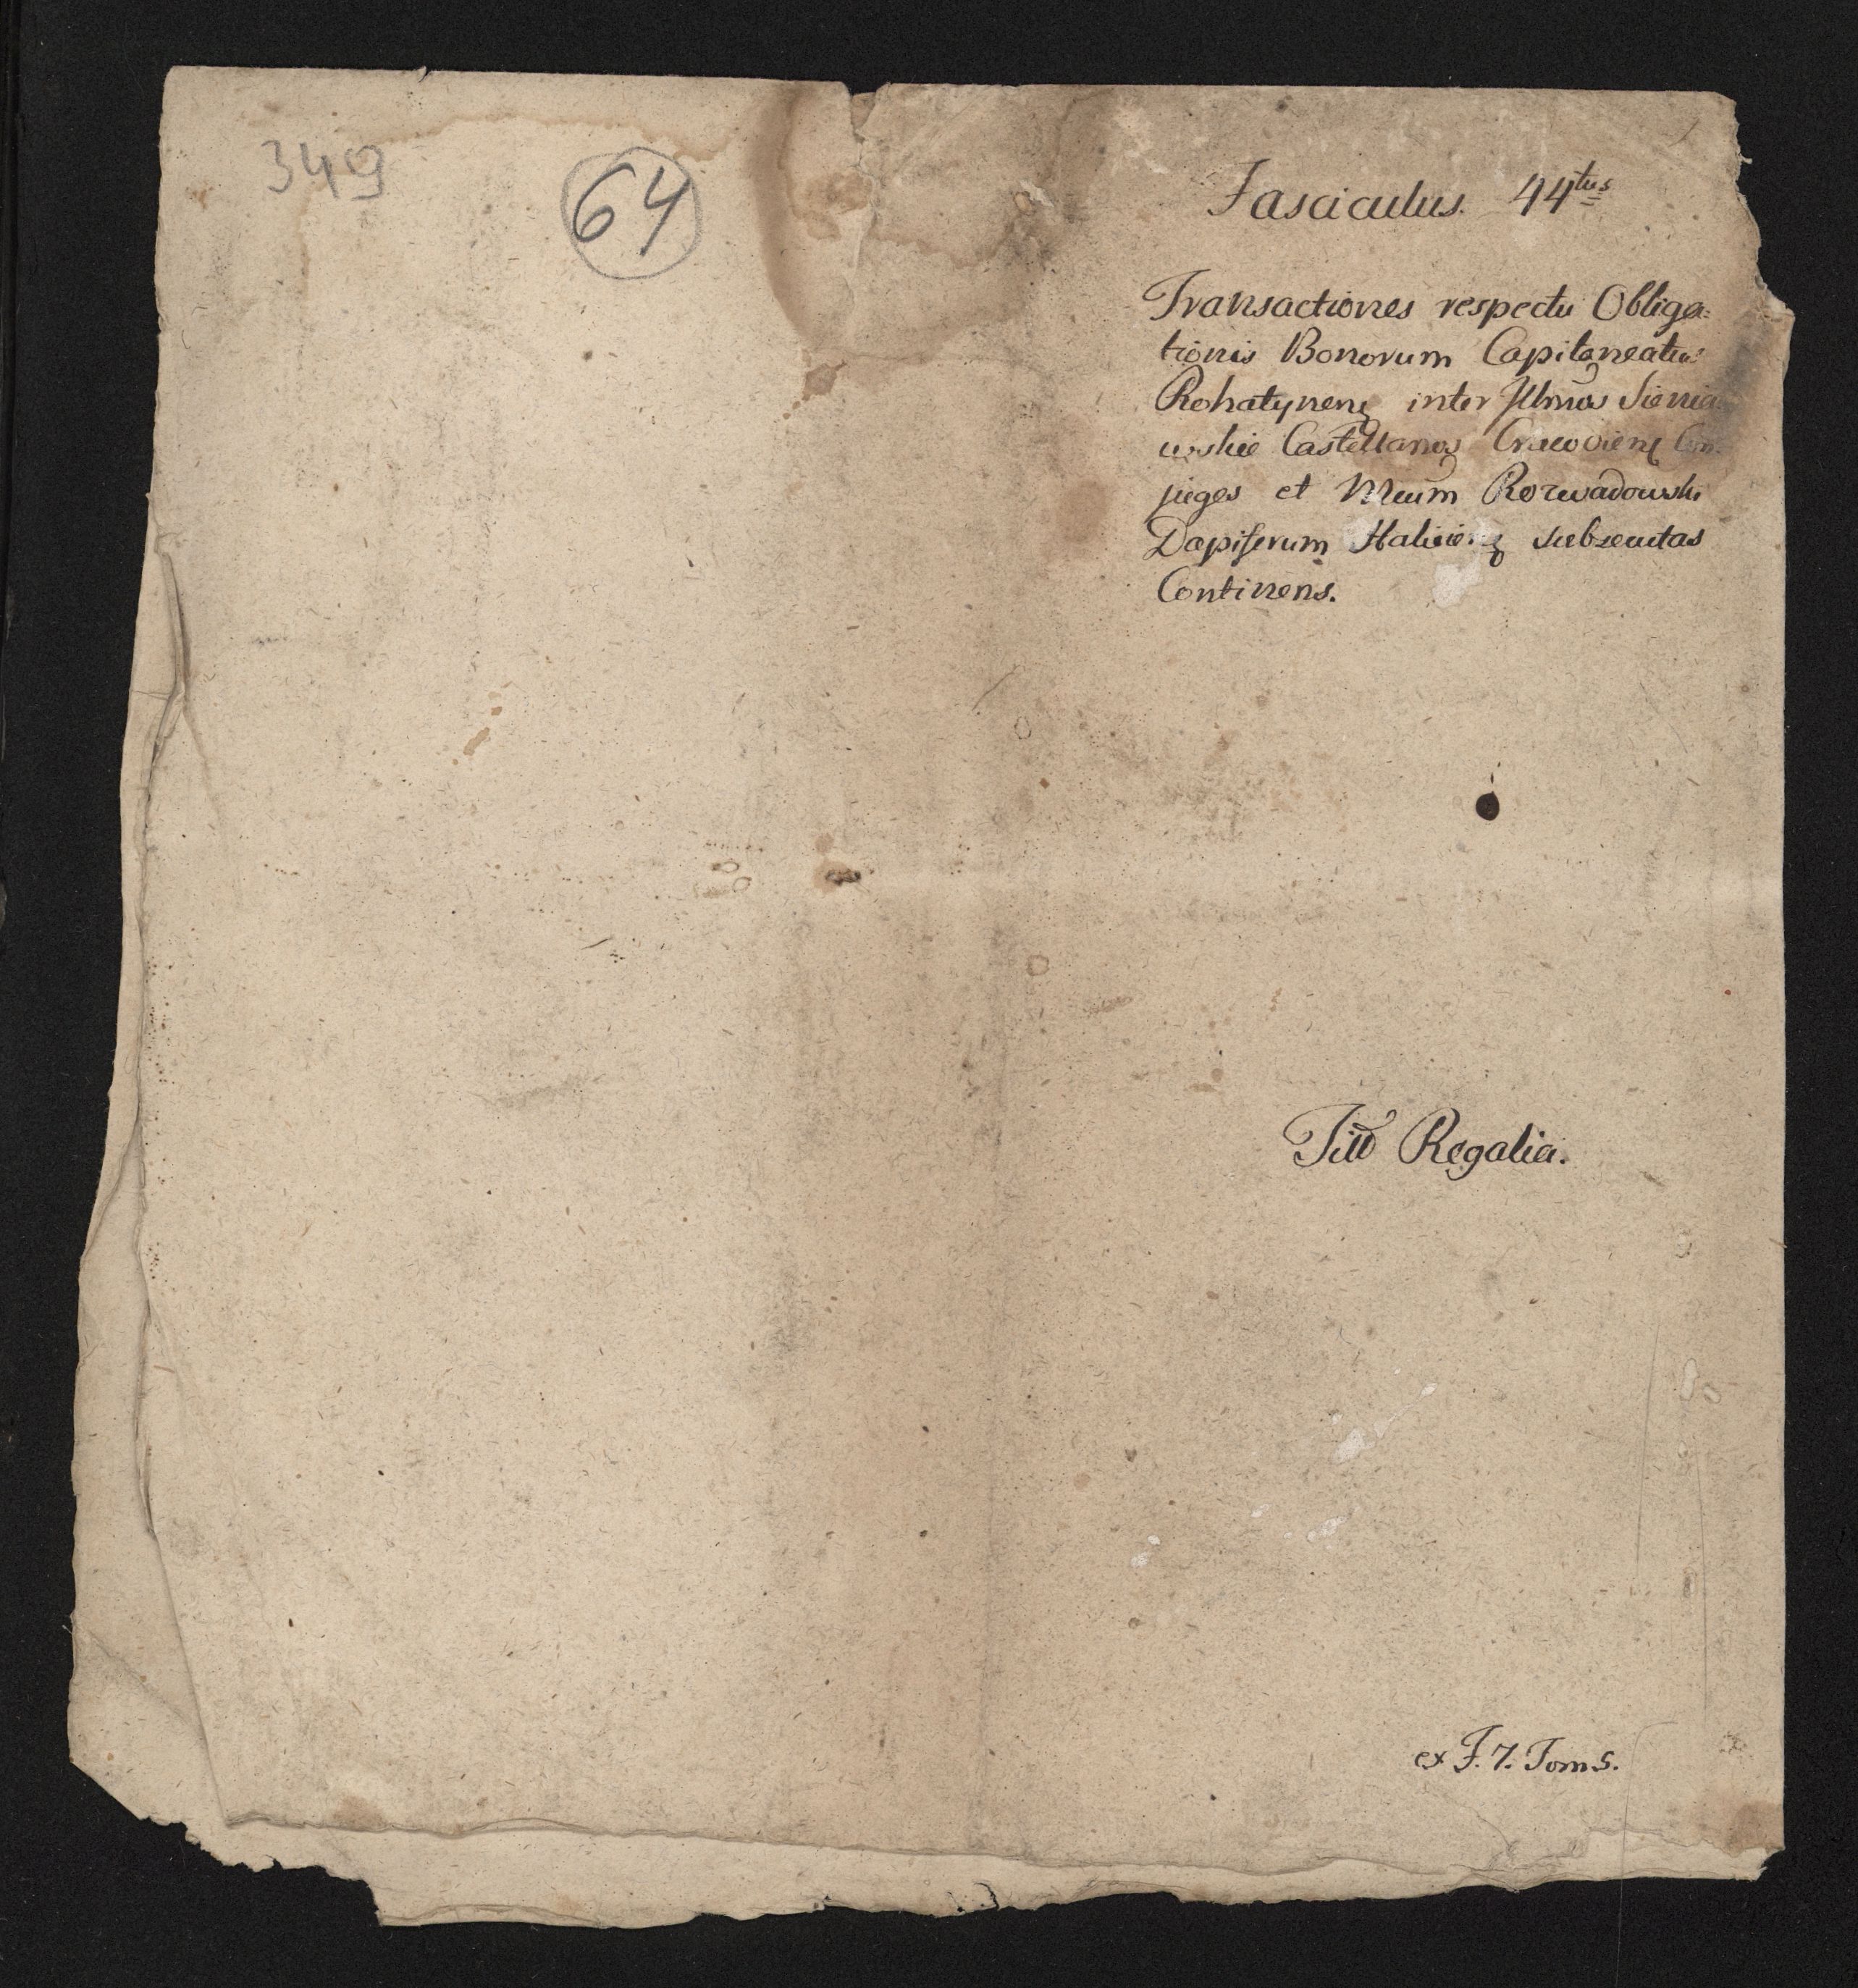 349
64
Fasciculus. 44tus
Transactiones respectu Obliga=
tionis Bonorum Capitaneatus
Rohatynenſ inter Illmos Sienia
wskie Castellanos Cracovienſ Con
juges et Mcum Rozwadowski
Dapiferum Haliciensȝ subsecutas
Continens.
Titło Regalia.
ex F. 7. Tom 5.